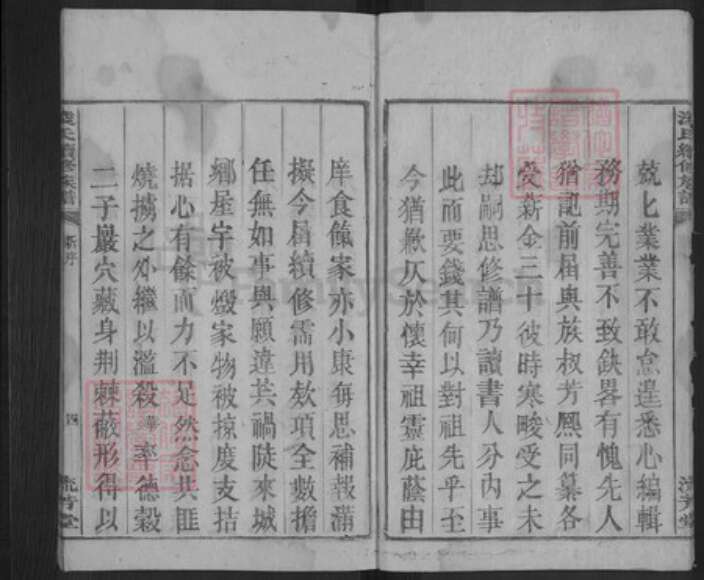 兢匕業業不敢怠遑悉心編輯
務期完善不致缺畧有愧先人
猶記前届與族叔芳熈同纂各
受薪金三十彼時寒畯受之未
却嗣思修譜乃讀書人分內事
此而要錢其何以對祖先乎至
今猶歉仄於懷幸祖靈庇蔭由
庠食餼家亦小康每思補報滿
擬今届續修需用欵項全數擔
任無如事與願違共禍陡來城
鄉屋宇被燬家物被掠度支拮
据心有餘而力不足然念共匪
燒擄之外繼以濫殺 率德榖
二子巖穴藏身荆棘蔽形得以
氏續修族譜
新序
四
流芳堂